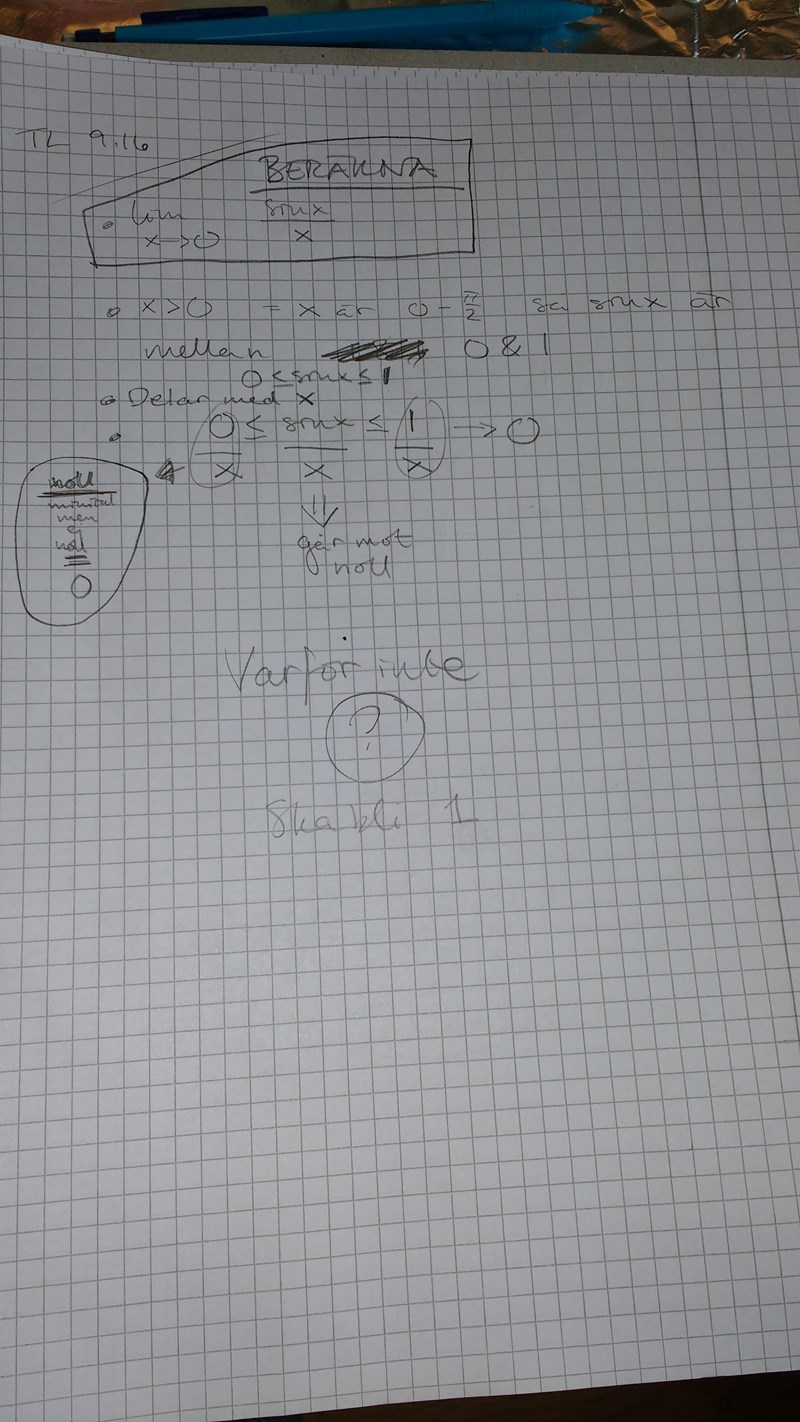 TL 9.16
BERÄKNA
• lim sinx / x
x→0
• x>0 = x är 0 - π/2 så sinx är
mellan 0 & 1
0 ≤ sinx ≤ 1
• Delar med x
• 0/x ≤ sinx/x ≤ 1/x → 0
noll
men
ej
noll
0
⇓
går mot
noll
Varför inte
?
Ska bli 1